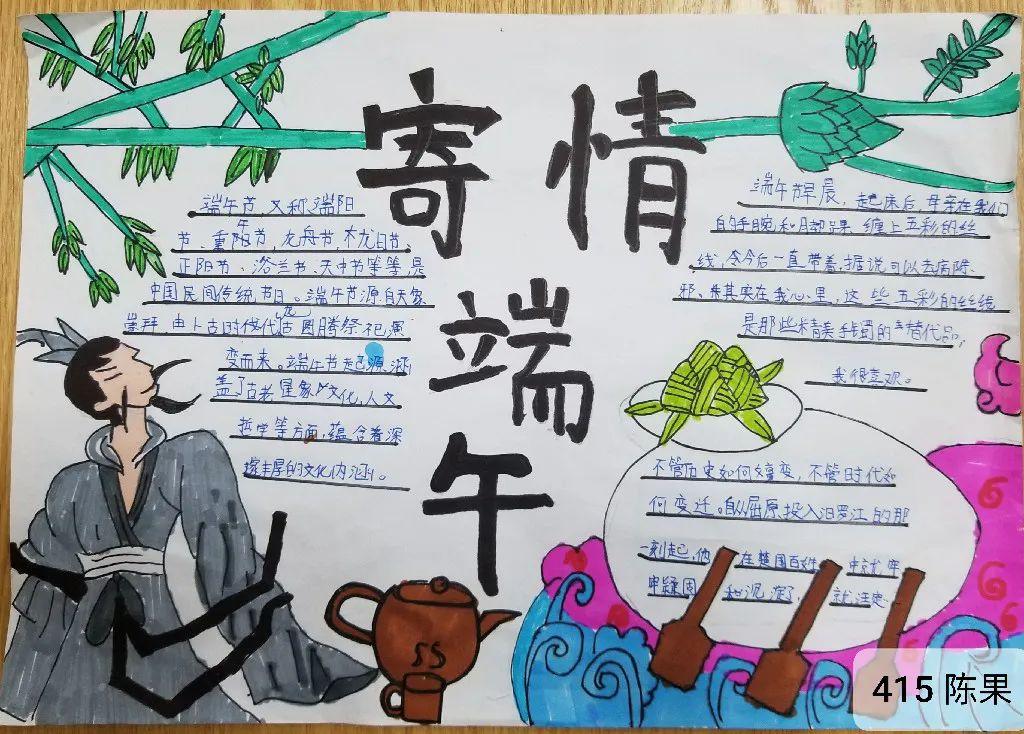 寄情
端午
端午节，又称端阳
节、重午节，龙舟节，
正阳节、浴兰节、天中节等等，是
中国民间传统节日。端午节源自天象
崇拜，由上古时代龙图腾祭祀演
变而来。端午节起源涵
盖了古老星象文化，人文
哲学等方面，蕴含着深
邃丰厚的文化内涵。
端午节早晨，起床后，母亲在我们
的手腕和脚踝缠上五彩的丝
线，令今后一直带着，据说可以去病除
邪、其实在我心里，这些五彩的丝线
是那些精美手镯的替代品，
我很喜欢。
不管历史如何变，不管时代如
何变迁。自从屈原投入汨罗江的那
一刻起，他 在楚国百姓 中
和 了， 就注定
415 陈果